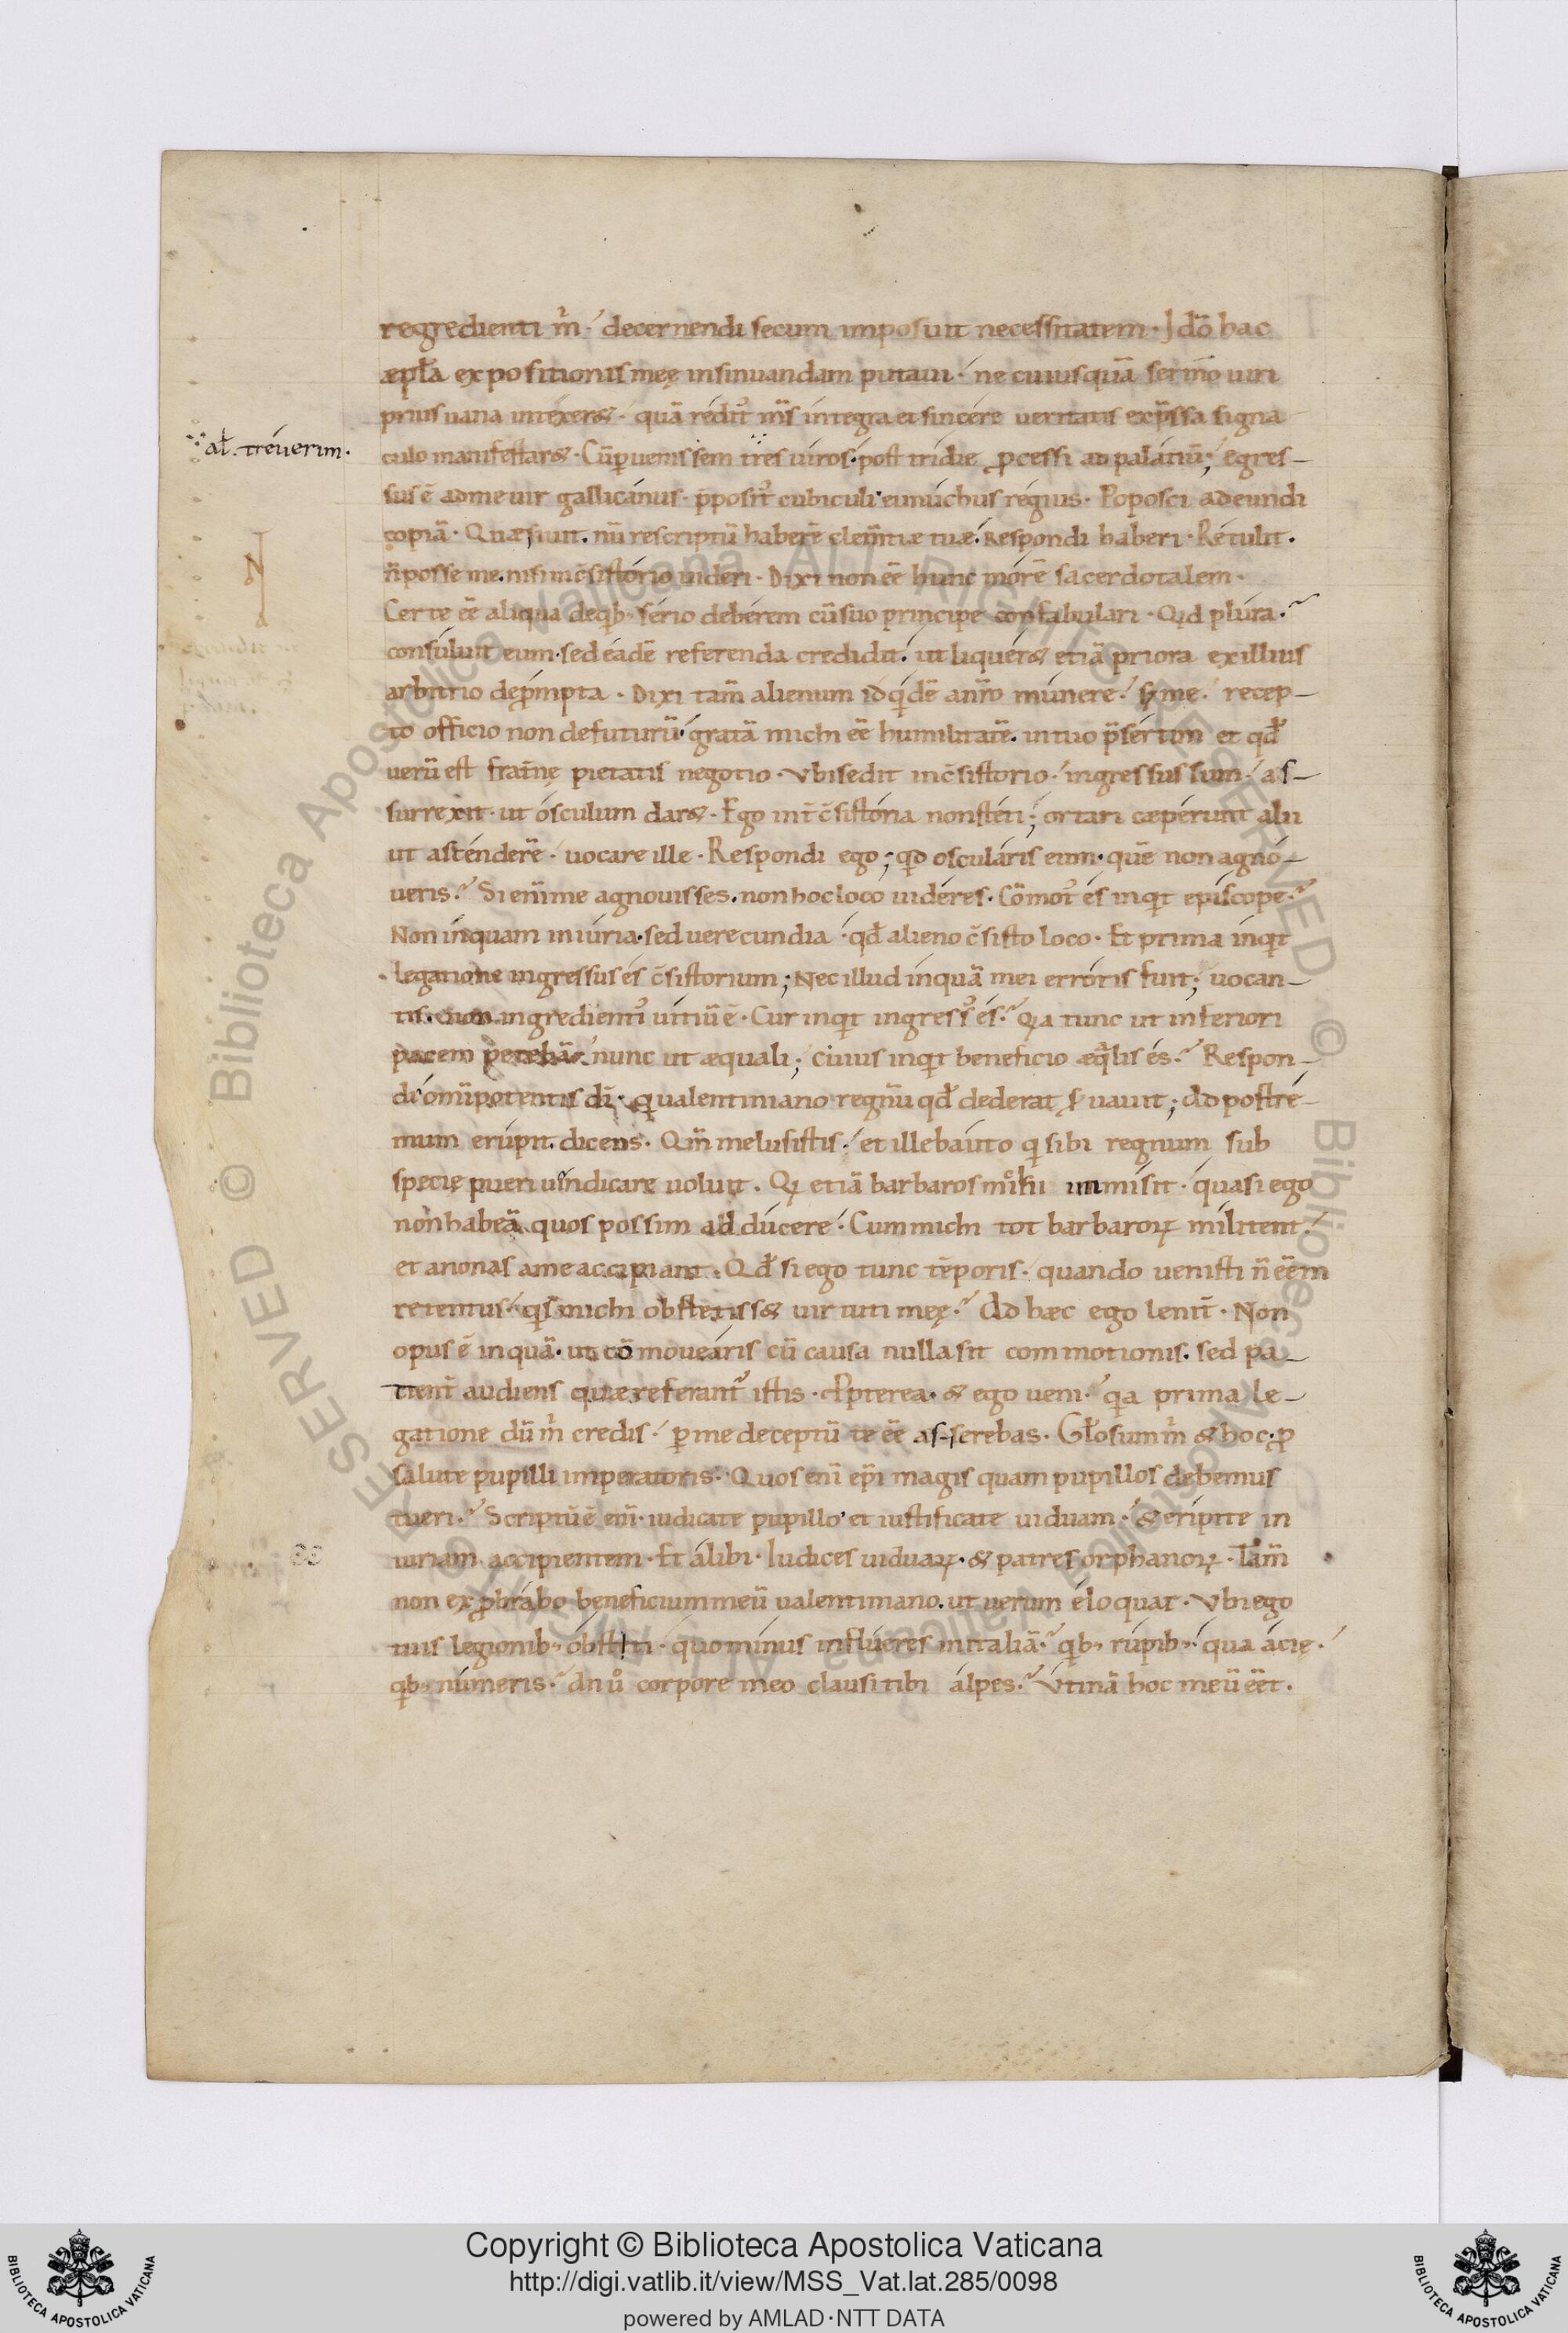 regredienti m̄ · decernendi secum imposuit necessitatem · Idō hac
æpl̄a expositionis meę insinuandam putaui · ne cuiusquā sermo uiri
prius uana intexer& · quā redit᷒ m̄s integra et sincere ueritatis exp̄ssa signa
culo manifestar& · Cū ꝑuenissem tres uiros · post tridie ꝓcessi ad palatiū ; egres-
al̄ . treuerim .
sus ē ad me uir gallicanus · p̄posit᷒ cubiculi eunuchus regius · Poposci adeundi
copiā · Quæsiuit . nū rescriptū haberē clem̄tiæ tuæ . Respondi haberi · Retulit .
n̄ posse me . nisi in c̄sistorio uideri · Dixi non eē hunc morē sacerdotalem ·
N
Certe eē aliqua de qb; serio deberem cū suo principe confabulari · Qid plura .
consuluit eum · sed eadē referenda credidit . ut liquer& etiā priora ex illius
arbitrio depmpta . Dixi tam̄ alienum id qidē a nr̄o munere . s; me . recep-
to officio non defuturū gratā michi eē humilitatē . in tuo p̄sertim et qd̄
uerū est frat̄nę pietatis negotio · Vbi sedit in c̄sistorio · ingressus sum · as-
surrexit · ut osculum dar& · Ego int̄ c̄sistoria non steti ; ortari cæperunt alii
ut astenderē · uocare ille · Respondi ego ; qd oscularis eum · quē non agno-
ueris . Si eni me agnouisses . non hoc loco uideres . Cōmot᷒ és inqt episcope .
Non inquam iniuria · sed uerecundia · qd̄ alieno c̄sisto loco · Et prima inqt
legatione ingressus és c̄sistorium ; Nec illud inquā mei erroris fuit ; uocan-
tis . non ingredient᷒ uitiū ē · Cur inqt ingress᷒ és . Qia tunc ut inferiori
pacem petebā . nunc ut æquali ; cuius inqt beneficio æqlis és . Respon-
di omīpotentis dī · q ualentiniano regnū qd̄ dederat ẜuauit ; Ad postre-
mum erupit . dicens · Qm̄ me lusistis . et ille bauto q sibi regnum sub
specie pueri uindicare uoluit . Qi etiā barbaros m᷒hii immisit · quasi ego
non habeā quos possim adducere · Cum michi tot barbaroꝝ militent .
et anonas a me accipiant . Qd̄ si ego tunc tēporis · quando uenisti n̄ eēm
retentus · qis michi obstetiss& uirtuti meę . Ad hæc ego lenit̄ · Non
opus ē inquā · ut cōmouearis cū causa nulla sit commotionis . sed pa-
tient̄ audiens quæ referant᷒ istis · ꝓpterea · & ego ueni · qia prima le-
gatione dū m̄ credis · ꝑ me deceptū te eē asserebas · Gl̄osum m̄ & hoc · ꝓ
salute pupilli imperatoris · Quos eni ep̄i magis quam pupillos debemus
tueri . Scriptū ē eni · iudicate pupillo et iustificate uiduam · & eripite in
iuriam accipientem · Et alibi · Iudices uiduaꝝ · & patres orphanoꝝ · Tam̄
non exꝓbrabo beneficium meū ualentiniano . ut uerum eloquar · Vbi ego
tuis legionib; obstiti · quo minus influeres in italiā . qb; rupib; · qua acię .
qb; numeris . dn ů corpore meo clausi tibi alpes . Vtinā hoc meū eēt .
Copyright © Biblioteca Apostolica Vaticana
http://digi.vatlib.it/view/MSS_Vat.lat.285/0098
powered by AMLAD·NTT DATA